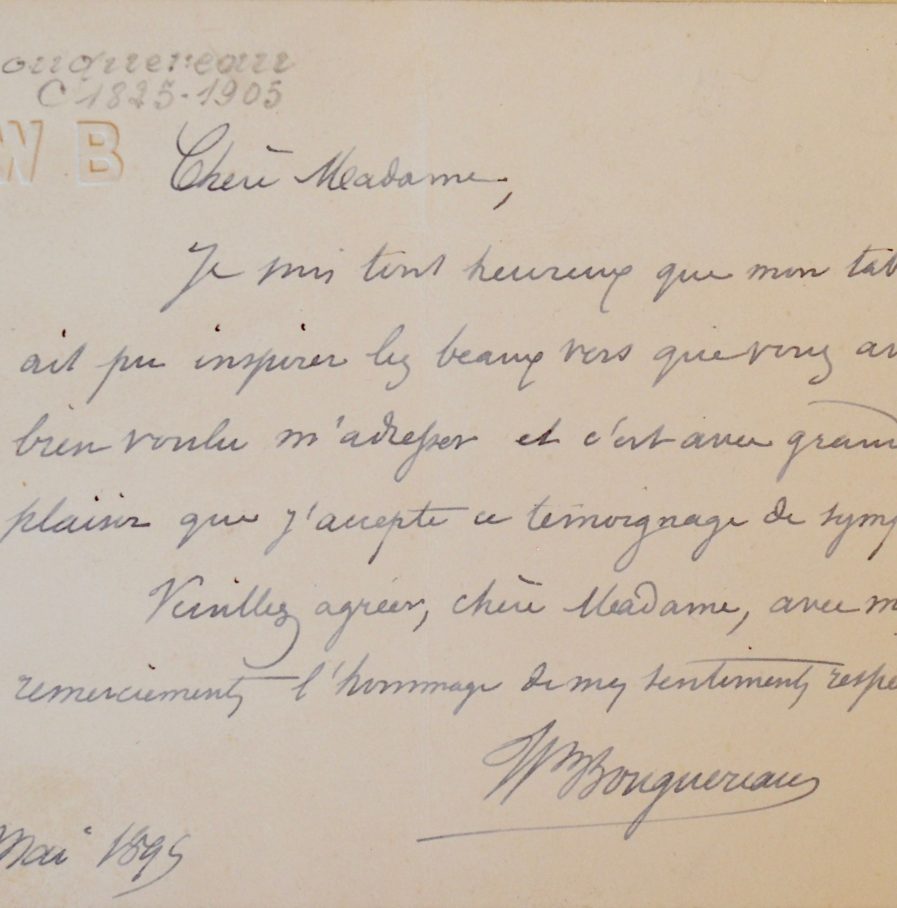 ouguereau
C 1825-1905
W B
Chère Madame,
Je suis tout heureux que mon tab
ait pu inspirer les beaux vers que vous av
bien voulu m'adresser et c'est avec grand
plaisir que j'accepte ce témoignage de symp
Veuillez agréer, chère Madame, avec m
remerciements l'hommage de mes sentiments respe
Wm Bouguereau
Mai 1895